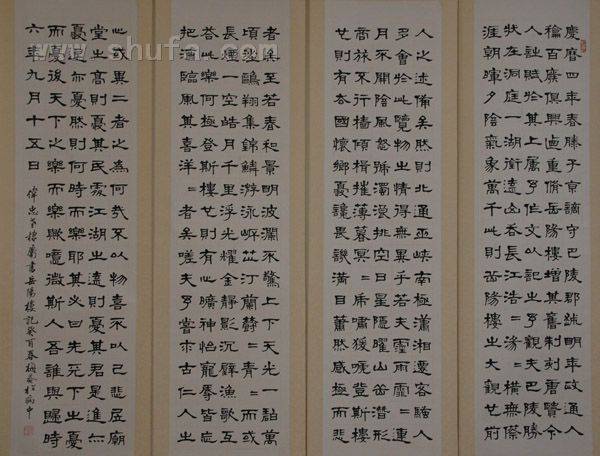 慶曆四年春滕子京謫守巴陵郡越明年政通人
和百廢俱興乃重修岳陽樓增其舊制刻唐賢今
人詩賦於其上屬予作文以記之予觀夫巴陵勝
狀在洞庭一湖銜遠山吞長江浩〻湯〻橫無際
涯朝暉夕陰氣象萬千此則岳陽樓之大觀也前
人之述備矣然則北通巫峽南極瀟湘遷客騷人
多會於此覽物之情得無異乎若夫霪雨霏〻連
月不開陰風怒號濁浪排空日星隱曜山岳潛形
商旅不行檣傾楫摧薄暮冥〻虎嘯猿啼登斯樓
也則有去國懷鄉憂讒畏譏滿目蕭然感極而悲
者矣至若春和景明波瀾不驚上下天光一碧萬
頃沙鷗翔集錦鱗游泳岸芷汀蘭鬱〻青〻而或
長煙一空皓月千里浮光耀金靜影沉璧漁歌互
答此樂何極登斯樓也則有心曠神怡寵辱皆忘
把酒臨風其喜洋〻者矣嗟夫予嘗求古仁人之
心或異二者之為何哉不以物喜不以己悲居廟
堂之高則憂其民處江湖之遠則憂其君是進亦
憂退亦憂然則何時而樂耶其必曰先天下之憂
而憂後天下之樂而樂歟噫微斯人吾誰與歸時
六年九月十五日
書岳陽樓記癸酉春
www.shufa.com